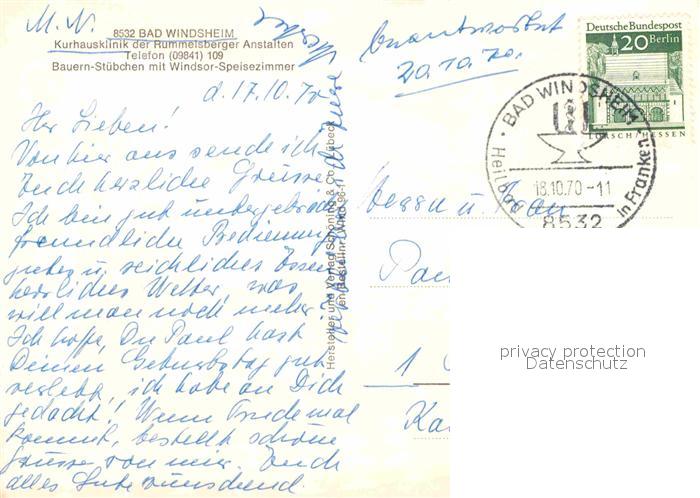 M. N.
8532 BAD WINDSHEIM
Kurhausklinik der Rummelsberger Anstalten
Telefon (09841) 109
Bauern-Stübchen mit Windsor-Speisezimmer
d. 17.10.70
Ihr Lieben!
Von hier aus sende ich
Euch herzliche Grüsse.
Ich bin gut untergebracht
freundliche Bedienung
gutes u. reichliches Essen
herrliches Wetter, was
will man noch mehr.
Ich hoffe, Du Paul hast
Deinen Geburtstag gut
verlebt, ich habe an Dich
gedacht! Wenn Friedemal
kommt, bestellt schöne
Grüsse von mir. Euch
alles Gute wünschend
Hersteller und Verlag Schöning & Co., Lübeck
beantwortet
20.10.70.
Deutsche Bundespost
20 Berlin
LORSCH/HESSEN
BAD WINDSHEIM
Heilbad
in Franken
18.10.70-11
8532
u. Frau
1
privacy protection
Datenschutz